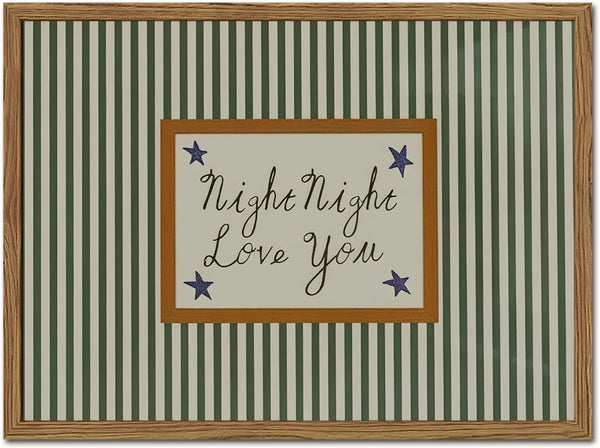 Night Night
Love You